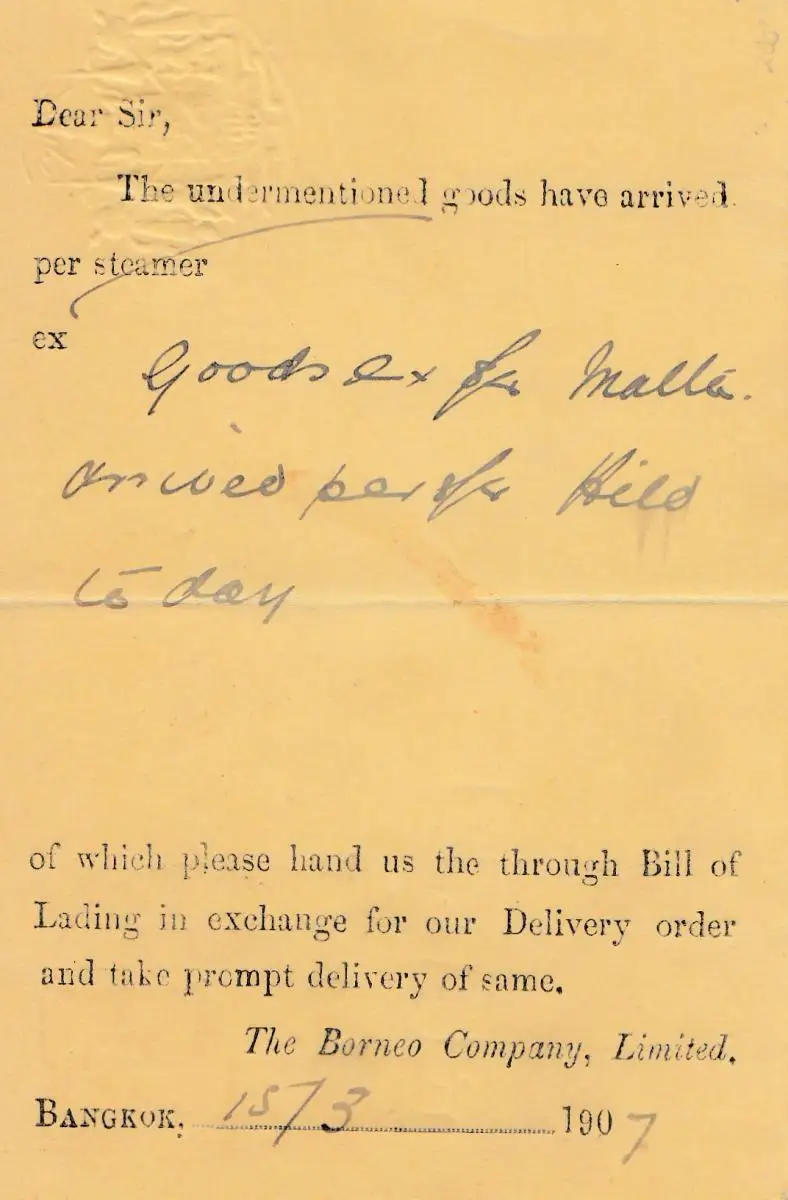 Dear Sir,
The undermentioned goods have arrived
per steamer
ex
Goods ex s/s Malta.
arrived per s/s Hild
to day
of which please hand us the through Bill of
Lading in exchange for our Delivery order
and take prompt delivery of same.
The Borneo Company, Limited.
BANGKOK, 15/3 1907